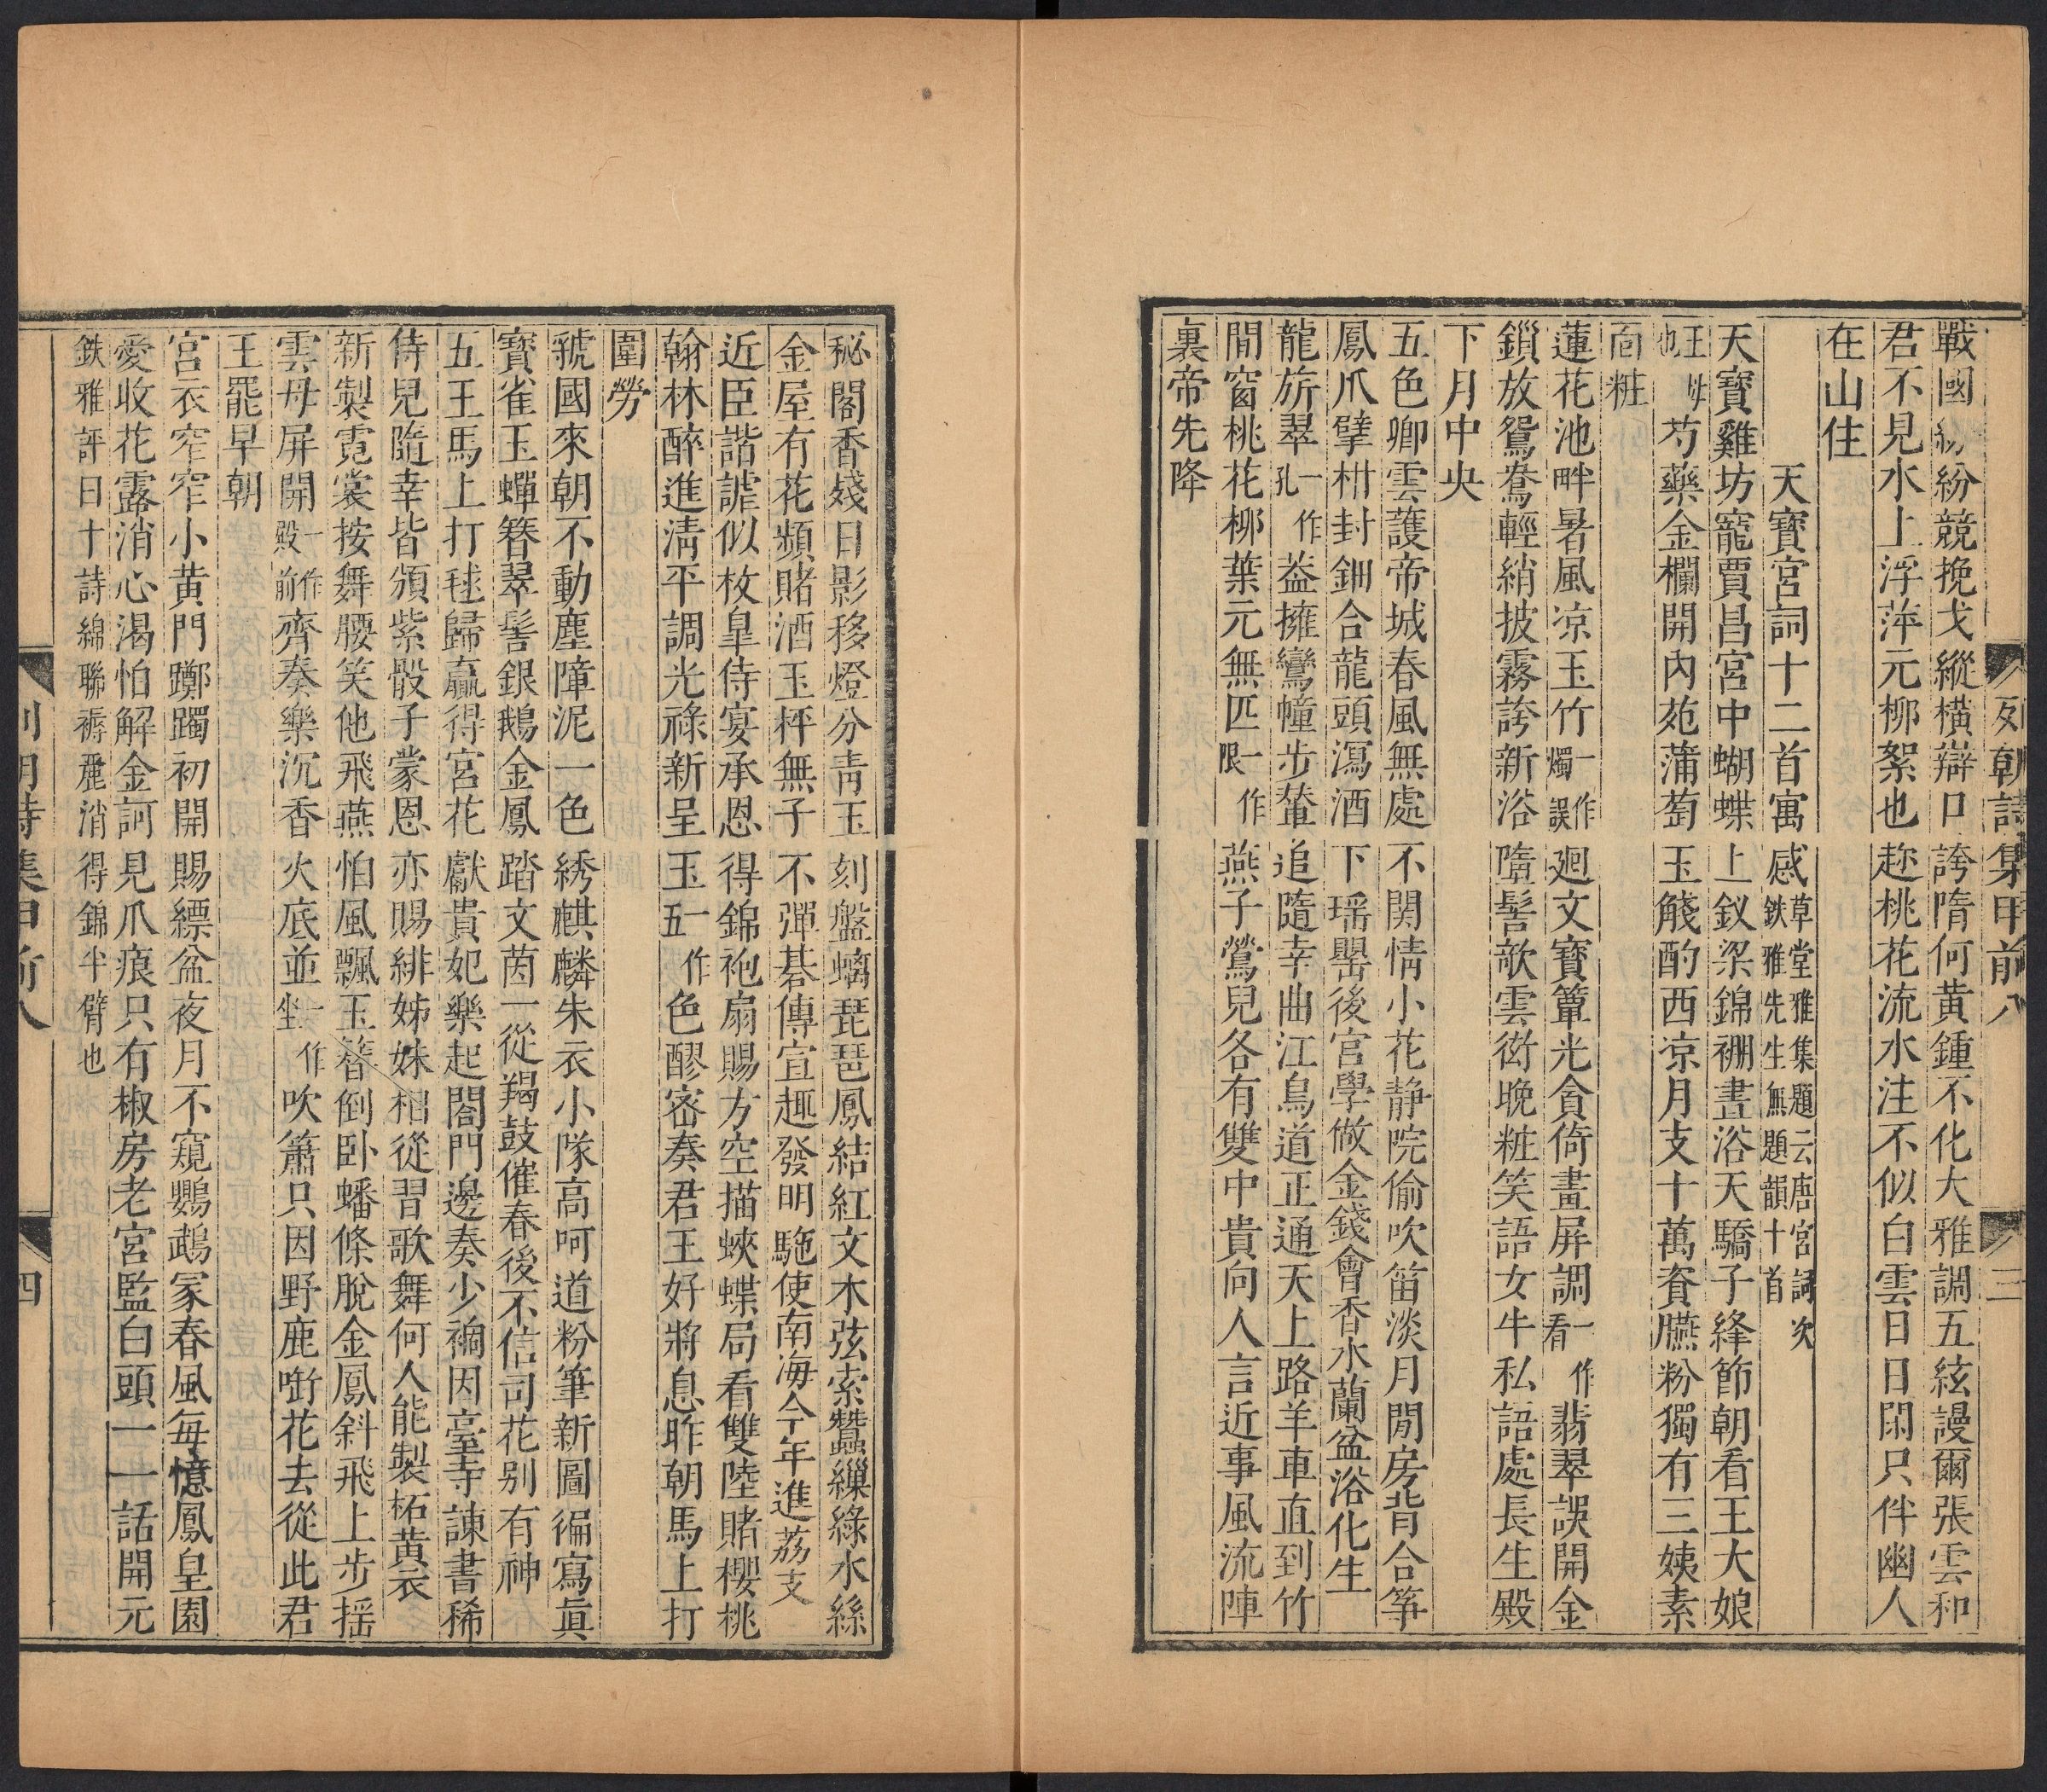 列朝詩集甲前八
三
戰國紛紛競挽戈縱橫辯口誇隋何黃鍾不化大雅調五絃謾爾張雲和
君不見水上浮萍元柳絮也趂桃花流水注不似白雲日日閑只伴幽人
在山住
天寶宮詞十二首寓感草堂雅集題云唐宮詞次鉄雅先生無題韻十首
天寶雞坊寵賈昌宮中蝴蝶上釵梁錦裯晝浴天驕子絳節朝看王大娘
芍藥金欄開內苑蒲萄玉觴酌西凉月支十萬賚臙粉獨有三姨素
面粧
蓮花池畔暑風凉玉竹一作燭誤迴文寶簟光貪倚畫屏調一作看翡翠誤開金
鎖放鴛鴦輕綃披霧誇新浴墮髻欹雲衒晚粧笑語女牛私語處長生殿
下月中央
五色卿雲護帝城春風無處不関情小花静院偷吹笛淡月閒房背合筝
鳳爪擘柑封鈿合龍頭瀉酒下瑶罌後宮學做金錢會香水蘭盆浴化生
龍旂翠一作孔蓋擁鸞幢步輦追隨幸曲江鳥道正通天上路羊車直到竹
間窗桃花柳葉元無匹一作限燕子鶯兒各有雙中貴向人言近事風流陣
裏帝先降
秘閣香殘日影移燈分靑玉刻盤螭琵琶鳳結紅文木弦索蠶繅綠水絲
金屋有花頻賭酒玉枰無子不彈碁傳宣趣發明駞使南海今年進荔支
近臣諧謔似枚臯侍宴承恩得錦袍扇賜方空描蛺蝶局看雙陸賭櫻桃
翰林醉進淸平調光祿新呈玉一作五色醪密奏君王好將息昨朝馬上打
圍勞
虢國來朝不動塵障泥一色綉麒麟朱衣小隊高呵道粉筆新圖徧寫眞
寳雀玉蟬簪翠髻銀鵝金鳳踏文茵一從羯鼓催春後不信司花别有神
五王馬上打毬歸贏得宮花獻貴妃樂起閤門邊奏少禍因臺寺諫書稀
侍兒隨幸皆頒紫骰子蒙恩亦賜緋姊妹相從習歌舞何人能製柘黃衣
新製霓裳按舞腰笑他飛燕怕風飄玉簪倒卧蟠條脫金鳳斜飛上步摇
雲母屏開一作殿前齊奏樂沉香火底並一作坐吹簫只因野鹿啣花去從此君
王罷早朝
宮衣窄窄小黃門躑躅初開賜縹盆夜月不窺鸚鵡冢春風每憶鳳皇園
愛收花露消心渴怕解金訶見爪痕只有椒房老宮監白頭一一話開元
鉄雅評曰十詩綿聯褥麗消得錦半臂也
列朝詩集甲前八
四